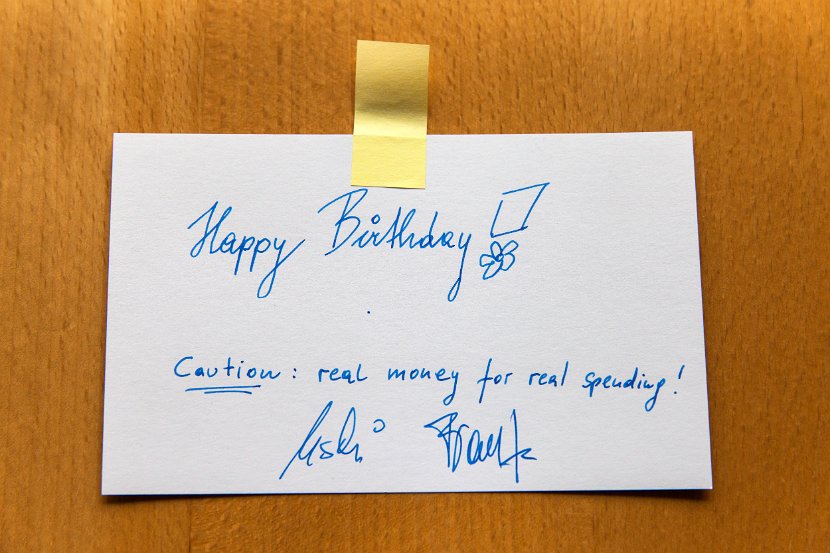 Happy Birthday!
Caution: real money for real spending!